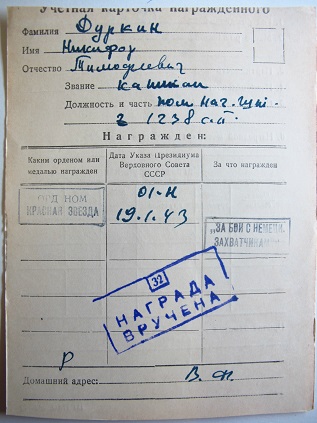 Учётная карточка награжденного
Фамилия Дуркин
Имя Никифор
Отчество Тимофеевич
Звание капитан
Должность и часть пом. нач.
1238 с.п.
Награжден:
Каким орденом или медалью награжден
Дата Указа Президиума Верховного Совета СССР
За что награжден
КРАСНАЯ ЗВЕЗДА
01-Н
19.1.43
„ЗА БОИ С НЕМЕЦК.
ЗАХВАТЧИКА
32
НАГРАДА
ВРУЧЕНА
Р
Домашний адрес: